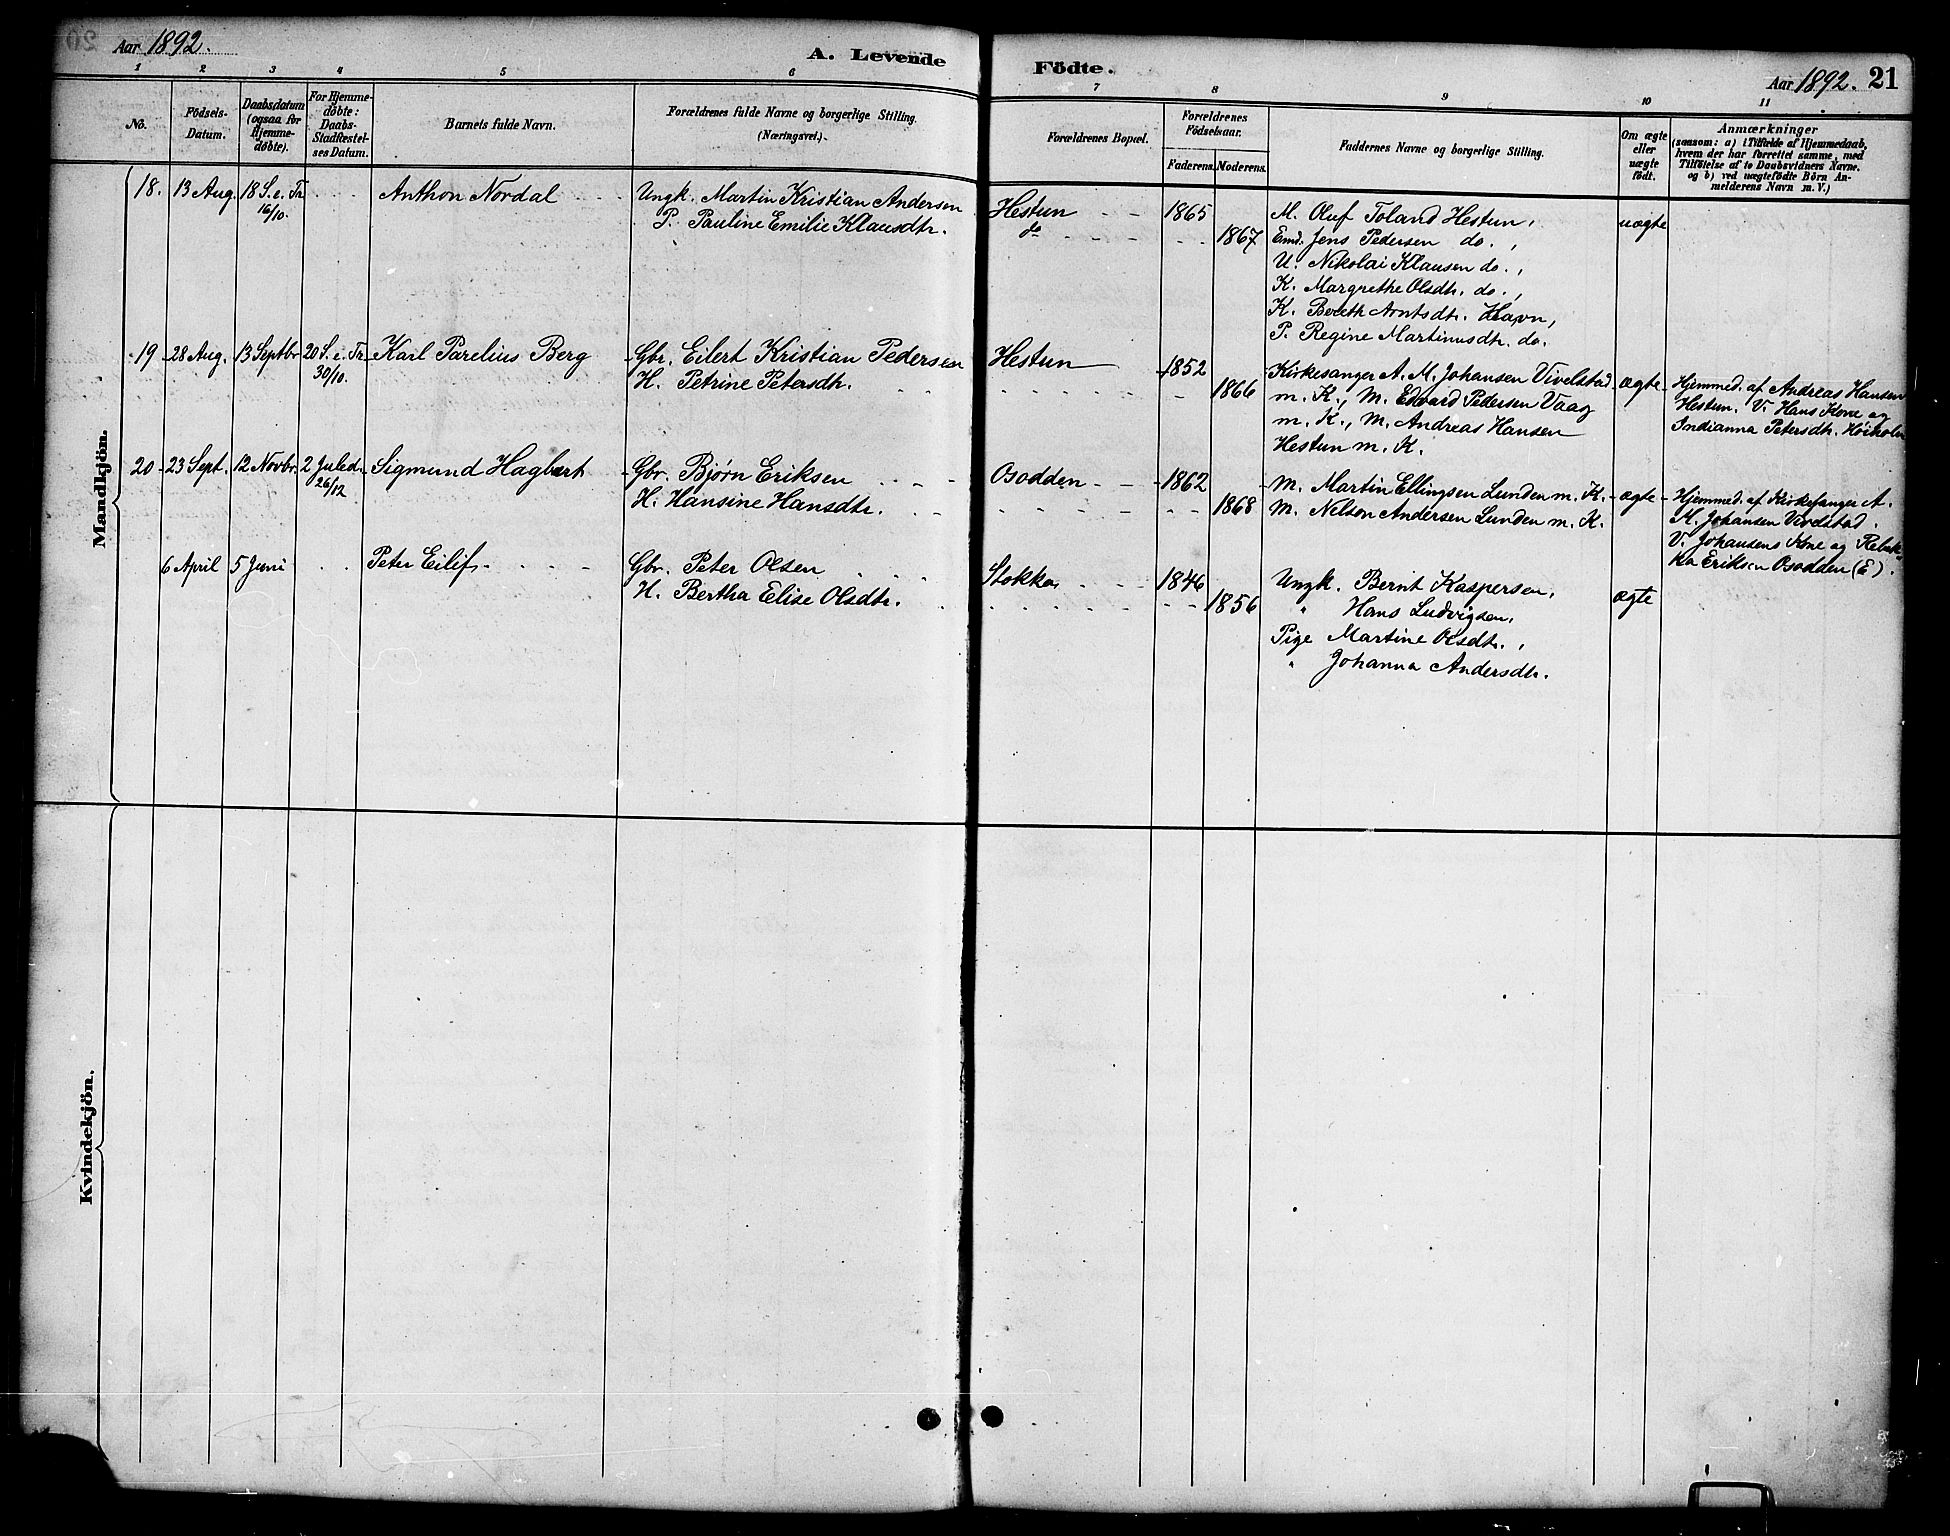 Aar 1892.
A. Levende Födte.
Aar 1892. 21
1 2 3 4 5 6 7 8 9 10 11
No.
Födsels-Datum.
Daabsdatum (ogsaa for Hjemmedøbte).
For Hjemmedøbte: Daabs-Stadfæstelses Datum.
Barnets fulde Navn.
Forældrenes fulde Navne og borgerlige Stilling. (Næringsvei).
Forældrenes Bopæl.
Forældrenes Födselsaar.
Faderens. Moderens.
Faddernes Navne og borgerlige Stilling.
Om ægte eller uægte födt.
Anmærkninger
(saasom: a) i Tilfælde af Hjemmedaab,
hvem der har forrettet samme, med
Tilföielse af to Daabsvidners Navne.
og b) ved uægtefödte Börn An-
melderens Navn m. V.)
Mandkjön.
18. 13 Aug. 18 S. e. Tr. 16/10. Anthon Nordal
Ungk. Martin Kristian Andersen
P. Pauline Emilie Klausdtr.
Hestun 1865
do 1867
M. Oluf Toland Hestun,
End. Jens Pedersen do.,
U. Nikolai Klausen do.,
K. Margrethe Olsdtr. do.,
K. Bereth Arntsdtr. Havn,
P. Regine Martinusdtr. do.
uægte
19 28 Aug. 13 Septbr 20 S. e. Tr. 30/10. Karl Parelius Berg
Gbr. Eilert Kristian Pedersen
H. Petrine Petersdtr.
Hestun 1852
1866
Kirkesanger A. M. Johansen Vivelstad
m. K., M. Edvard Pedersen Vaag
m. K., M. Andreas Hansen
Hestun m. K.
ægte
Hjemmed. af Andreas Hansen
Hestun. V. Hans Kone og
Indianna Petersdtr. Høiholm
20 23 Sept. 12 Novbr. 2 Juled. 26/12 Sigmund Hagbart
Gbr. Bjørn Eriksen
H. Hansine Hansdtr.
Osodden 1862
1868
M. Martin Ellingsen Lunden m. K.
M. Nelson Andersen Lunden m. K.
ægte
Hjemmed. af Kirkesanger A.
M. Johansen Vivelstad.
V. Johansens Kone og Rebek-
ka Eriksen Osodden (E).
6 April 5 Juni Peter Eilif
Gbr. Peter Olsen
H. Bertha Elise Olsdtr.
Stokka 1846
1856
Ungk. Bernt Kaspersen,
" Hans Ludvigsen,
Pige Martine Olsdtr.,
" Johanna Andersdtr.
ægte
Kvindekjön.